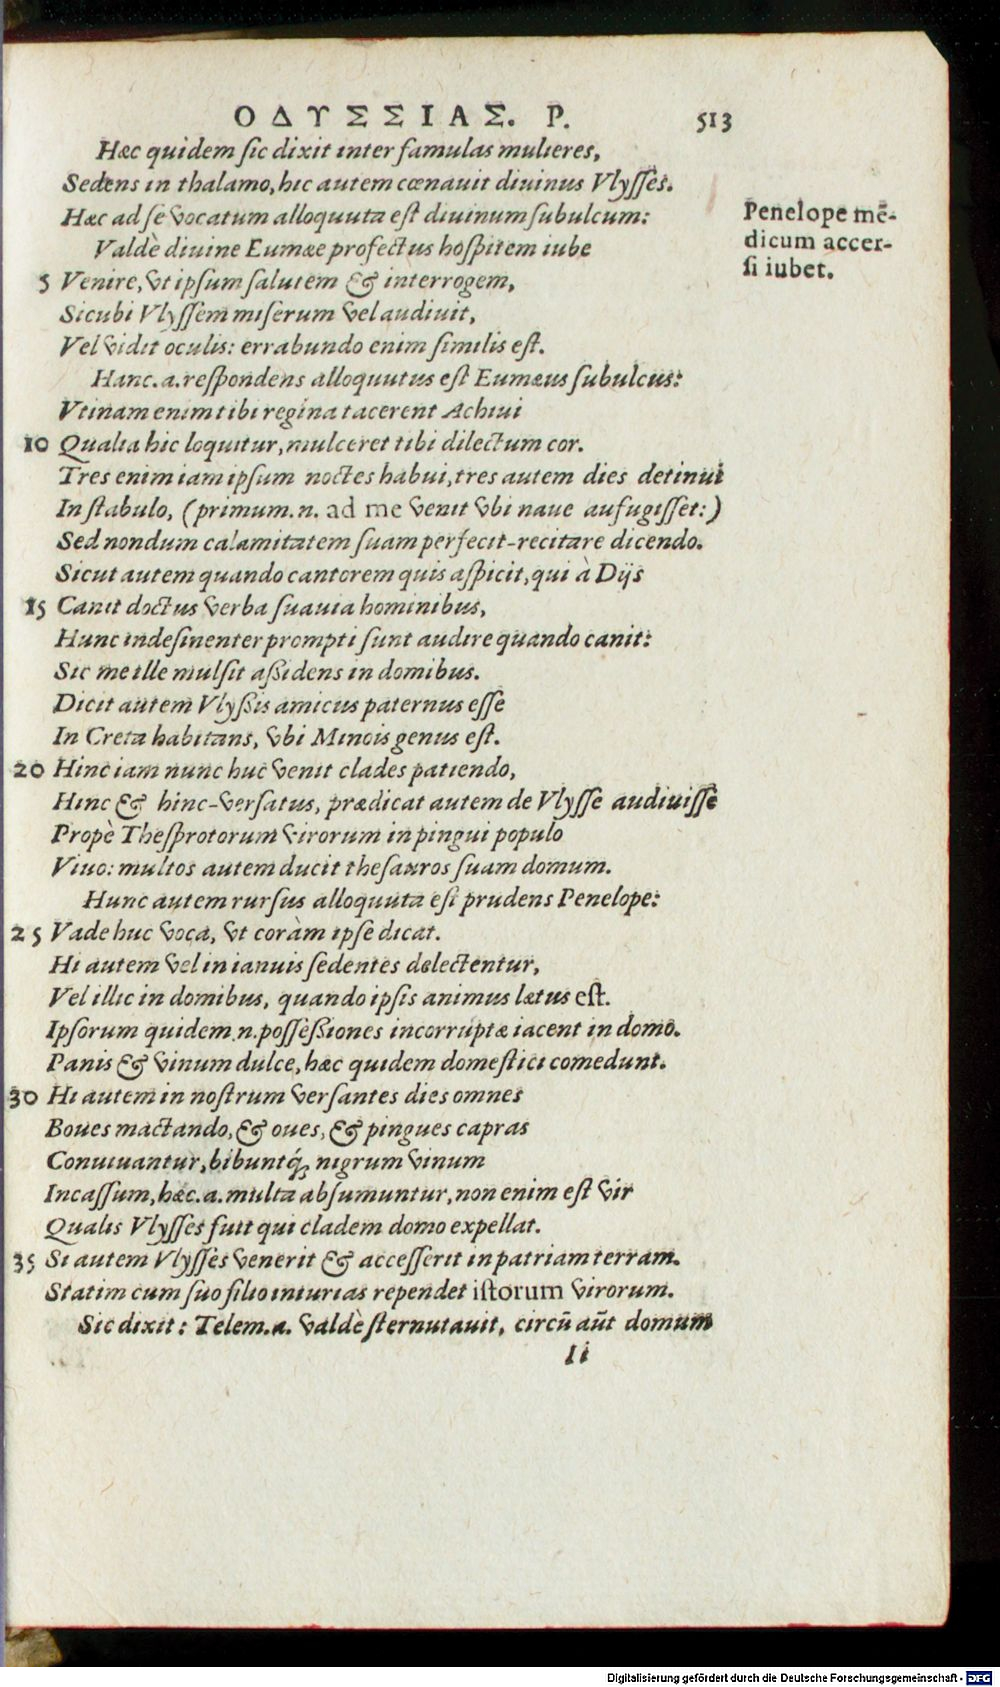 ΟΔΥΣΣΙΑΣ. Ρ. 513
Hæc quidem sic dixit inter famulas mulieres,
Sedens in thalamo, hic autem cœnauit diuinus Vlysses.
Hæc ad se vocatum alloquuta est diuinum subulcum:
Valdè diuine Eumæe profectus hospitem iube
5 Venire, vt ipsum salutem & interrogem,
Sicubi Vlyssem miserum vel audiuit,
Vel vidit oculis: errabundo enim similis est.
Hanc.a.respondens alloquutus est Eumæus subulcus:
Vtinam enim tibi regina tacerent Achiui
10 Qualia hic loquitur, mulceret tibi dilectum cor.
Tres enim iam ipsum noctes habui, tres autem dies detinui
In stabulo, (primum.n. ad me venit vbi naue aufugisset:)
Sed nondum calamitatem suam perfecit-recitare dicendo.
Sicut autem quando cantorem quis aspicit, qui à Dijs
15 Canit doctus verba suauia hominibus,
Hunc indesinenter prompti sunt audire quando canit:
Sic me ille mulsit assidens in domibus.
Dicit autem Vlyssis amicus paternus esse
In Creta habitans, vbi Minois genus est.
20 Hinc iam nunc huc venit clades patiendo,
Hinc & hinc-versatus, prædicat autem de Vlysse audiuisse
Propè Thesprotorum virorum in pingui populo
Viuo: multos autem ducit thesauros suam domum.
Hunc autem rursus alloquuta est prudens Penelope:
25 Vade huc voca, vt coràm ipse dicat.
Hi autem vel in ianuis sedentes delectentur,
Vel illic in domibus, quando ipsis animus lætus est.
Ipsorum quidem.n.possessiones incorruptæ iacent in domo.
Panis & vinum dulce, hæc quidem domestici comedunt.
30 Hi autem in nostrum versantes dies omnes
Boues mactando, & oues, & pingues capras
Conuiuantur, bibuntq́; nigrum vinum
Incassum, hæc.a.multa absumuntur, non enim est vir
Qualis Vlysses fuit qui cladem domo expellat.
35 Si autem Vlysses venerit & accesserit in patriam terram.
Statim cum suo filio iniurias rependet istorum virorum.
Sic dixit: Telem.a. valdè sternutauit, circū aūt domum
Ii
Penelope mē-
dicum accer-
si iubet.
Digitalisierung gefördert durch die Deutsche Forschungsgemeinschaft - DFG